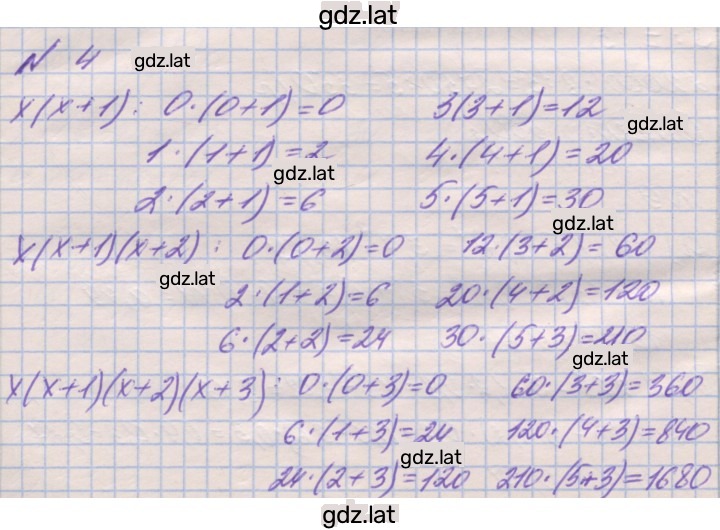 gdz.lat
№ 4 gdz.lat
x(x+1): 0·(0+1)=0 3(3+1)=12
gdz.lat
1·(1+1)=2 4·(4+1)=20
gdz.lat
2·(2+1)=6 5·(5+1)=30
gdz.lat
x(x+1)(x+2): 0·(0+2)=0 12·(3+2)=60
gdz.lat
2·(1+2)=6 20·(4+2)=120
6·(2+2)=24 30·(5+3)=210
gdz.lat
x(x+1)(x+2)(x+3): 0·(0+3)=0 60·(3+3)=360
6·(1+3)=24 120·(4+3)=840
gdz.lat
24·(2+3)=120 210·(5+3)=1680
gdz.lat